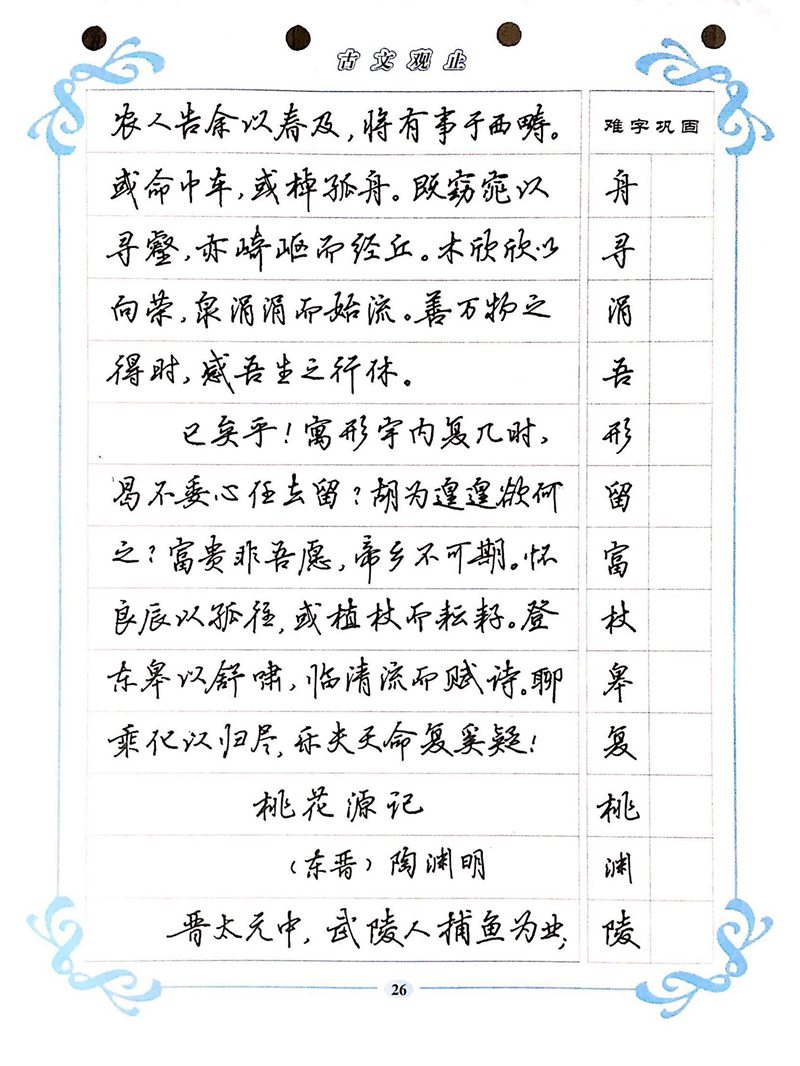 古文观止
农人告余以春及，将有事于西畴。
难字巩固
或命巾车，或棹孤舟。既窈窕以
舟
寻壑，亦崎岖而经丘。木欣欣以
寻
向荣，泉涓涓而始流。善万物之
涓
得时，感吾生之行休。
吾
已矣乎！寓形宇内复几时，
形
曷不委心任去留？胡为遑遑欲何
留
之？富贵非吾愿，帝乡不可期。怀
富
良辰以孤往，或植杖而耘耔。登
杖
东皋以舒啸，临清流而赋诗。聊
皋
乘化以归尽，乐夫天命复奚疑！
复
桃花源记
桃
（东晋）陶渊明
渊
晋太元中，武陵人捕鱼为业；
陵
26